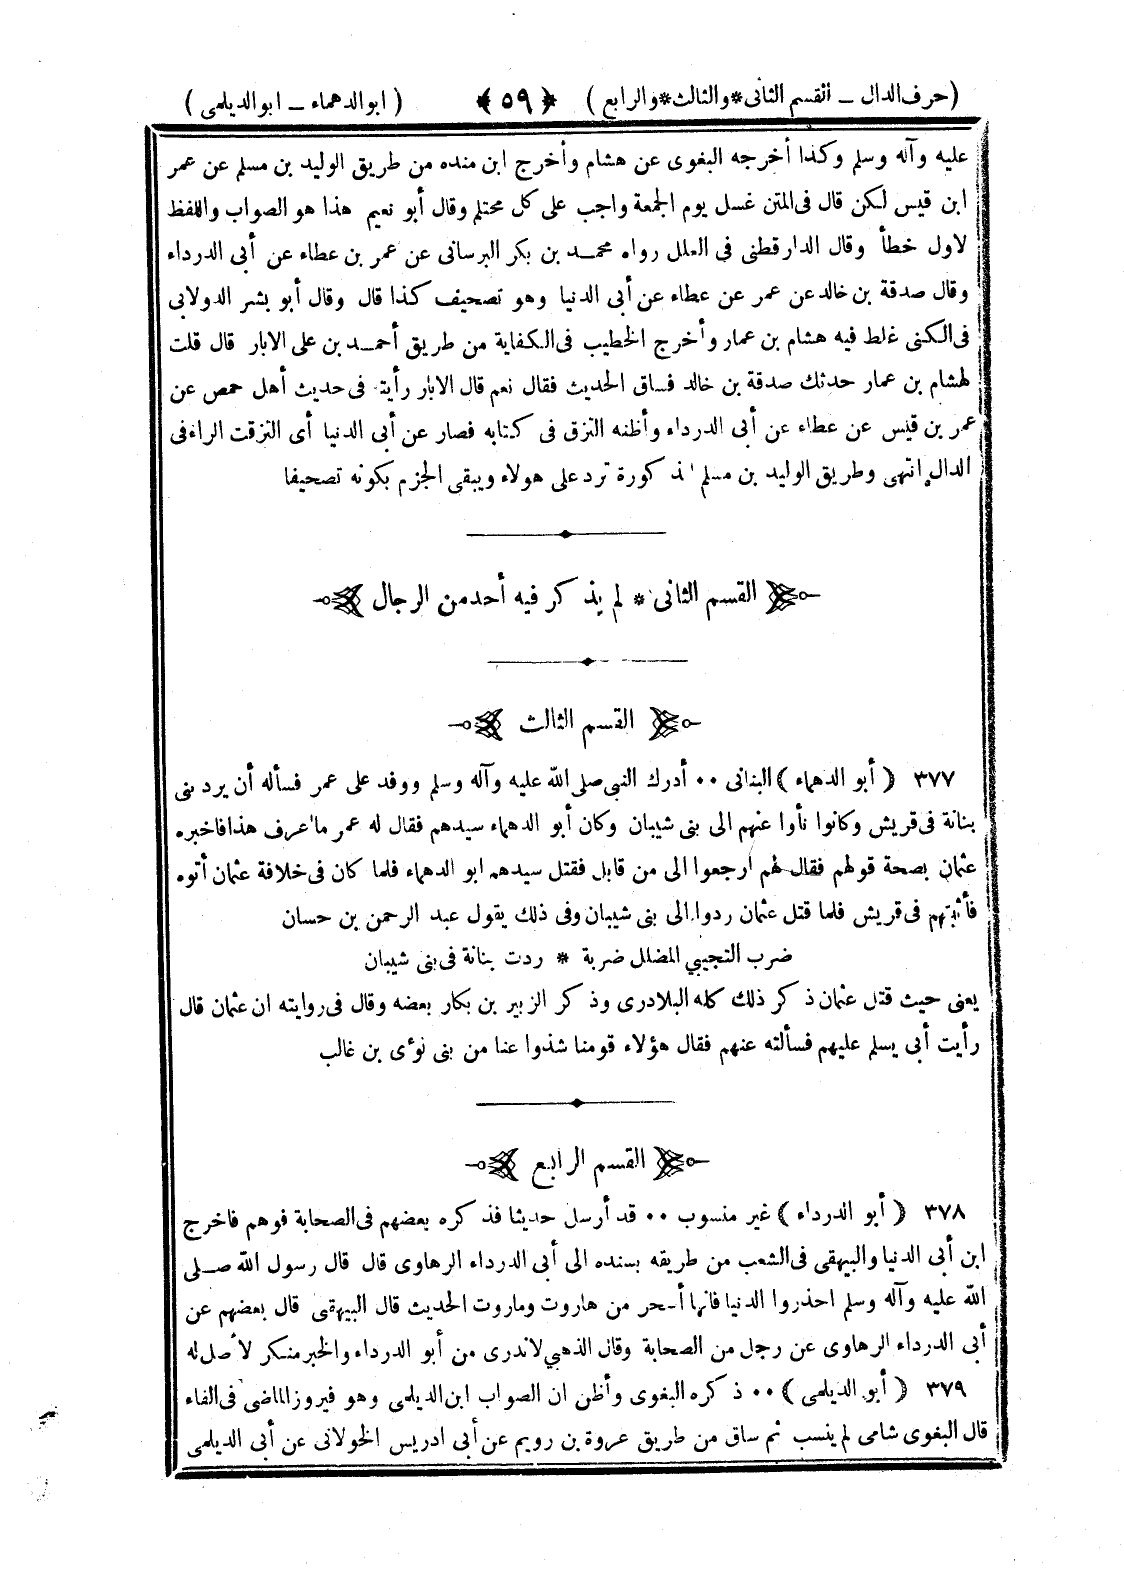 (حرف الدال ــ القسم الثاني*والثالث*والرابع) ﴿ ٥٩ ﴾ (ابوالدهماء ــ ابوالديلمى)
عليه وآله وسلم وكذا أخرجه البغوى عن هشام وأخرج ابن منده من طريق الوليد بن مسلم عن عمر
ابن قيس لكن قال فى المتن غسل يوم الجمعة واجب على كل محتلم وقال أبو نعيم هذا هو الصواب واللفظ
لاول خطأ وقال الدارقطنى فى العلل رواه محمد بن بكر البرسانى عن عمر بن عطاء عن أبى الدرداء
وقال صدقة بن خالد عن عمر عن عطاء عن أبى الدنيا وهو تصحيف كذا قال وقال أبو بشر الدولابى
فى الكنى غلط فيه هشام بن عمار وأخرج الخطيب فى الكفاية من طريق أحمد بن على الابار قال قلت
لهشام بن عمار حدثك صدقة بن خالد فساق الحديث فقال نعم قال الابار رأيته فى حديث أهل حمص عن
عمر بن قيس عن عطاء عن أبى الدرداء وأظنه التزق فى كتابه فصار عن أبى الدنيا أى التزقت الراء فى
الدال انتهى وطريق الوليد بن مسلم المذكورة ترد على هولاء ويبقى الجزم بكونه تصحيفا
القسم الثانى * لم يذكر فيه أحد من الرجال
القسم الثالث
٣٧٧ ﴿ أبو الدهماء ﴾ البنانى ٠٠ أدرك النبى صلى الله عليه وآله وسلم ووفد على عمر فسأله أن يرد بنى
بنانة فى قريش وكانوا نأوا عنهم الى بنى شيبان وكان أبو الدهماء سيدهم فقال له عمر ما أعرف هذا فاخبره
عثمان بصحة قولهم فقال لهم ارجعوا الى من قابل فقتل سيدهم ابو الدهماء فلما كان فى خلافة عثمان أتوه
فأثبتهم فى قريش فلما قتل عثمان ردوا الى بنى شيبان وفى ذلك يقول عبد الرحمن بن حسان
ضرب التجيبي المضلل ضربة * ردت بنانة فى بنى شيبان
يعنى حيث قتل عثمان ذكر ذلك كله البلادرى وذكر الزبير بن بكار بعضه وقال فى روايته ان عثمان قال
رأيت أبى يسلم عليهم فسألته عنهم فقال هؤلاء قومنا شذوا عنا من بنى لوءى بن غالب
القسم الرابع
٣٧٨ ﴿ أبو الدرداء ﴾ غير منسوب ٠٠ قد أرسل حديثا فذكره بعضهم فى الصحابة فوهم فاخرج
ابن أبى الدنيا والبيهقى فى الشعب من طريقه بسنده الى أبى الدرداء الرهاوى قال قال رسول الله صلى
الله عليه وآله وسلم احذروا الدنيا فانها أسحر من هاروت وماروت الحديث قال البيهقى قال بعضهم عن
أبى الدرداء الرهاوى عن رجل من الصحابة وقال الذهبي لاندرى من أبو الدرداء والخبر منكر لا أصل له
٣٧٩ ﴿ أبو الديلمى ﴾ ٠٠ ذكره البغوى وأظن ان الصواب ابن الديلمى وهو فيروز الماضى فى الفاء
قال البغوى شامى لم ينسب ثم ساق من طريق عروة بن رويم عن أبى ادريس الخولانى عن أبى الديلمى